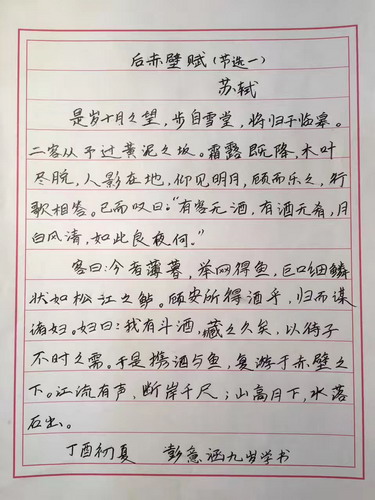 后赤壁赋(节选一)
苏轼
是岁十月之望，步自雪堂，将归于临皋。
二客从予过黄泥之坂。霜露既降，木叶
尽脱，人影在地，仰见明月，顾而乐之，行
歌相答。已而叹曰：“有客无酒，有酒无肴，月
白风清，如此良夜何。”
客曰：今者薄暮，举网得鱼，巨口细鳞
状如松江之鲈。顾安所得酒乎，归而谋
诸妇。妇曰：我有斗酒，藏之久矣，以待子
不时之需。于是携酒与鱼，复游于赤壁之
下。江流有声，断岸千尺；山高月下，水落
石出。
丁酉初夏 彭意涵九岁学书